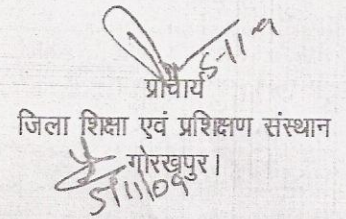 5-11-9
प्राचार्य
जिला शिक्षा एवं प्रशिक्षण संस्थान
गोरखपुर।
5/11/09